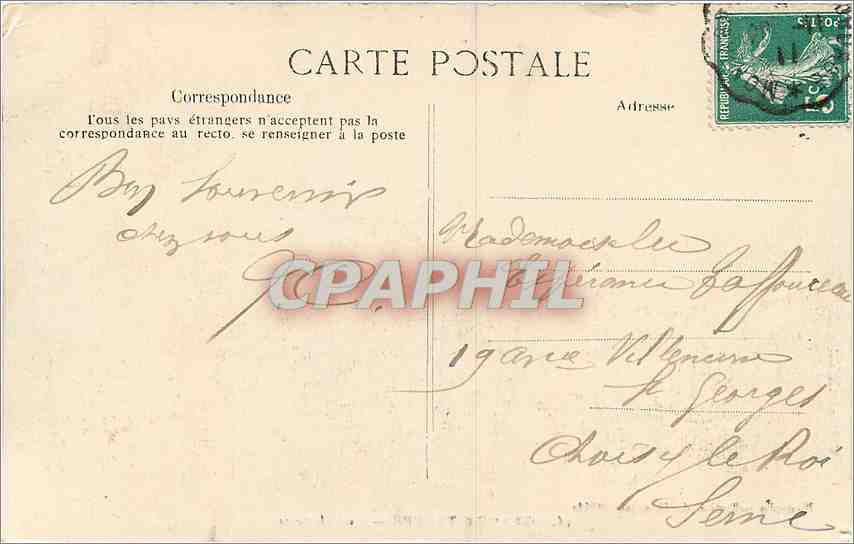 CARTE POSTALE
Correspondance
Tous les pays étrangers n'acceptent pas la
correspondance au recto, se renseigner à la poste
Bon souvenir
chez vous
CPAPHIL
Adresse
REPUBLIQUE FRANÇAISE
POSTES
5c
Mademoiselle
Espérance Laffoureau
19 Villeneuve
St Georges
Choisy le Roi
Seine